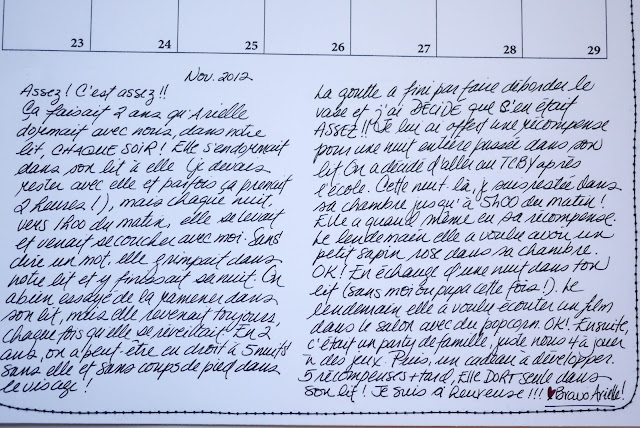 23 24 25 26 27 28 29
Nov. 2012
Assez! C'est assez!!
Ça faisait 2 ans qu'Arielle
dormait avec nous, dans notre
lit, CHAQUE SOIR! Elle s'endormait
dans son lit à elle (je devais
rester avec elle et parfois ça prenait
2 heures!), mais chaque nuit,
vers 1h00 du matin, elle se levait
et venait se coucher avec moi. Sans
dire un mot, elle grimpait dans
notre lit et y finissait sa nuit. On
a bien essayé de la ramener dans
son lit, mais elle revenait toujours,
chaque fois qu'elle se réveillait. En 2
ans, on a peut-être eu droit à 5 nuits
sans elle et sans coups de pied dans
le visage!
La goutte a fini par faire déborder le
vase et j'ai DÉCIDÉ que s'en était
ASSEZ!! Je lui ai offert une récompense
pour une nuit entière passée dans son
lit. On a décidé d'aller au TCBY après
l'école. Cette nuit-là, je suis restée dans
sa chambre jusqu'à 5h00 du matin!
Elle a quand même eu sa récompense.
Le lendemain elle a voulu avoir un
petit sapin rose dans sa chambre.
OK! En échange d'une nuit dans ton
lit (sans moi ou papa cette fois!). Le
lendemain elle a voulu écouter un film
dans le salon avec du popcorn. OK! Ensuite,
c'était un party de famille, juste nous 4 à jouer
à des jeux. Puis, un cadeau à développer.
5 récompenses + tard, Elle DORT seule dans
son lit! Je suis si heureuse!!! Bravo Arielle!